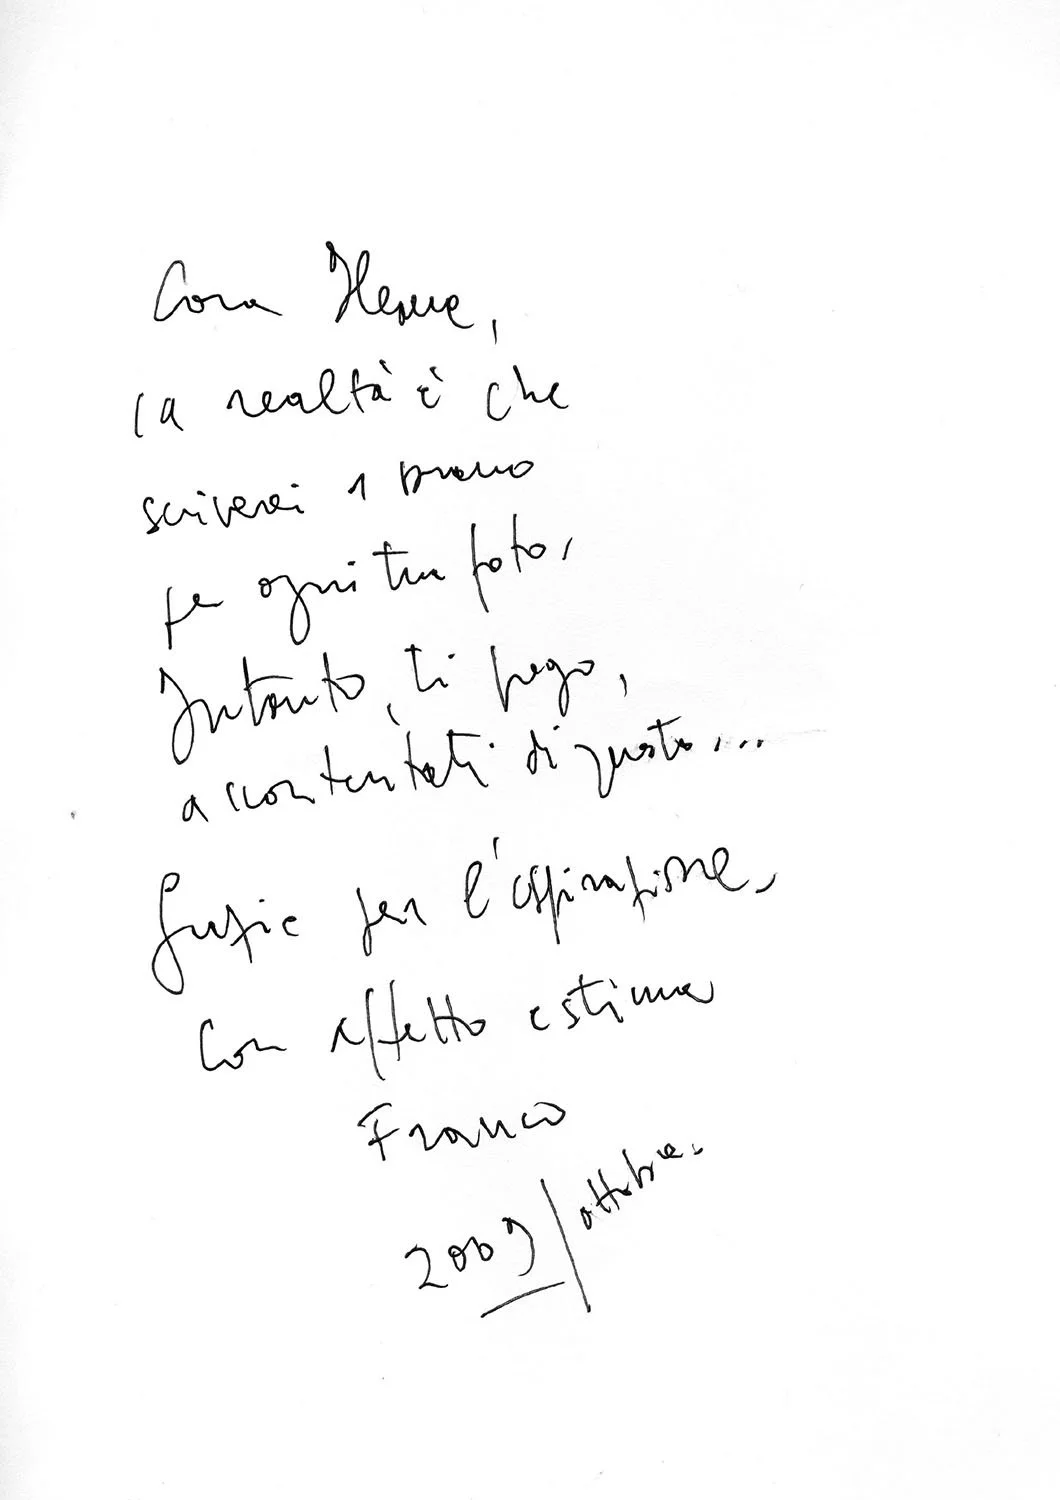 Cara Ilenia,
la realtà è che
scriverei 1 brano
per ogni tua foto.
Intanto, ti prego,
accontentati di questo...
Grazie per l'ispirazione,
Con affetto e stima
Franco
2009/ottobre.